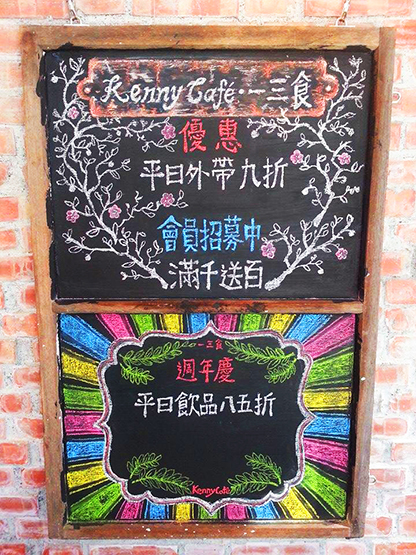 Kenny Café·一三食
優惠
平日外帶九折
會員招募中
滿千送百
一三食
週年慶
平日飲品八五折
Kenny Café